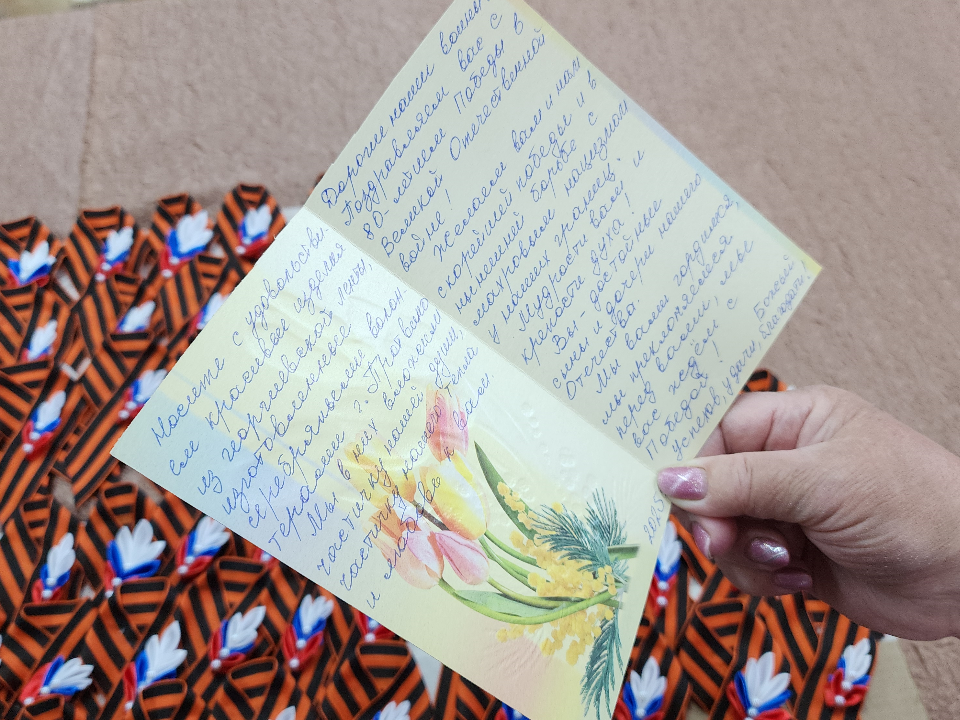 Дорогие наши воины!
Поздравляем вас с
80-летием Победы в
Великой Отечественной
войне!
Желаем вам и нам
скорейшей победы и в
нынешней борьбе с
махровым нацизмом
у наших границ!
Мудрости вам и
крепости духа!
Вы - достойные
сыны и дочери нашего
Отечества.
Мы вами гордимся,
мы преклоняемся
перед вами, мы
вас ждём с
Победой!
Успехов, удачи, Божией
благодати!
Носите с удовольстви-
ем красивые изделия
из георгиевской ленты,
изготовленные
серебряными волон-
терами г.
Мы в них вложили
частичку нашей души,
частичку нашего тепла
и любви к вам
2025